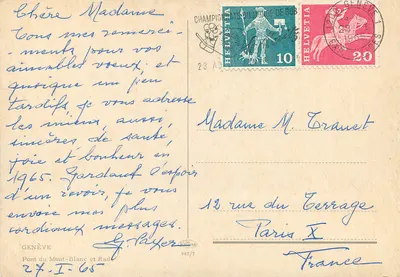 Chère Madame
Tous mes remercie-
ments pour vos
aimables vœux et
quoique un peu
tardifs je vous adresse
les miens aussi
sincères de santé,
joie et bonheur en
1965. Gardant l'espoir
d'un revoir, je vous
envoie mes plus
cordiaux messages.
GENÈVE
Pont du Mont-Blanc et Rade
27-I-65
CHAMPION
HELVETIA
10
HELVETIA
20
GENÈVE 1
Madame M.
12 rue du Terrage
Paris X
France